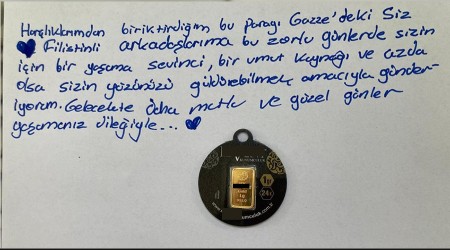 Harçlıklarımdan biriktirdiğim bu parayı Gazze'deki Siz
Filistinli arkadaşlarıma bu zorlu günlerde sizin
için bir yaşama sevinci, bir umut kaynağı ve azda
olsa sizin yüzünüzü güldürebilmek amacıyla gönder-
iyorum. Gelecekte daha mutlu ve güzel günler
yaşamanız dileğiyle...
1g
24